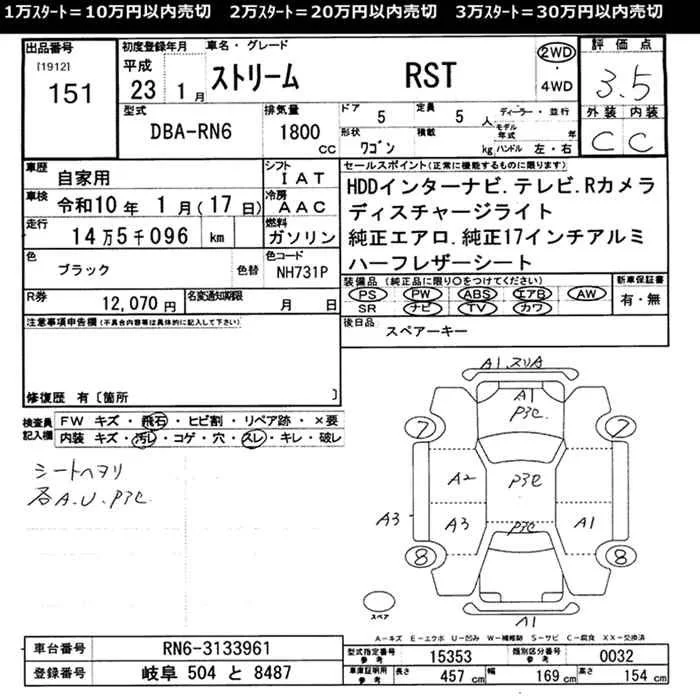 1万スタート＝10万円以内売切　2万スタート＝20万円以内売切　3万スタート＝30万円以内売切
出品番号 初度登録年月 車名・グレード 評価点
[1912] 151 平成 23 1月 ストリーム RST 2WD ・ 4WD 3.5
型式 DBA-RN6 排気量 1800 CC ドア 5 定員 5人 ディーラー・並行 外装 内装
形状 ワゴン 積載 kg モデル年式 年 ハンドル 左・右 C C
車歴 自家用 シフト IAT セールスポイント(正常に機能するものに限ります)
車検 令和10年 1月(17日) 冷房 AAC HDDインターナビ.テレビ.Rカメラ
走行 14万5千096 km 燃料 ガソリン ディスチャージライト
純正エアロ.純正17インチアルミ
色 ブラック 色替 色コード NH731P ハーフレザーシート
R券 12,070円 名変通知期限 月 日 装備品 (純正品に限り○をつけてください) 新車保証書
PS PW ABS エアB AW 有・無
SR ナビ TV カワ
注意事項申告欄(不具合内容等は具体的に記入して下さい) 後日品 スペアーキー
修復歴 有 [箇所 ]
検査員記入欄 FW キズ・飛石・ヒビ割・リペア跡・×要
内装 キズ・汚レ・コゲ・穴・スレ・キレ・破レ
シートヘタリ
各A.U.P3C
A1.スリA
A1
P3C
7 7
A2 P3C
A3 A3 P3C A1
8 8
スペア A1
A－キズ E－エクボ U－凹み W－補修跡 S－サビ C－腐食 XX－交換済
車台番号 RN6-3133961 型式指定番号 参考 15353 類別区分番号 参考 0032
登録番号 岐阜 504 と 8487 車庫証明用 参考 長さ 457 cm 幅 169 cm 高さ 154 cm